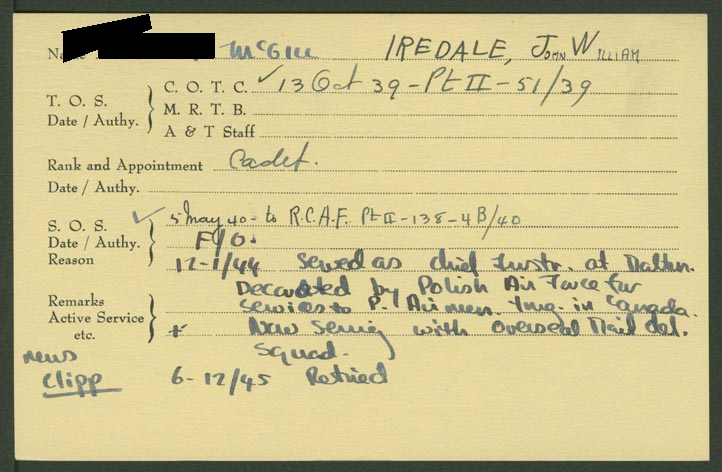 McGill IREDALE, JOHN WILLIAM
T. O. S.
Date / Authy.
C. O. T. C. ✓ 13 Oct 39 - Pt II - 51/39
M. R. T. B.
A & T Staff
Rank and Appointment Cadet.
Date / Authy.
S. O. S.
Date / Authy.
Reason
✓ 5 May 40 - to R.C.A.F. Pt II - 138 - 4B/40
F/O.
12-1/44 Served as chief Instr. at Malton.
Decorated by Polish Air Force for
Remarks
Active Service
etc.
services to P. Airmen. tng. in Canada.
+ Now serving with overseas Mail del.
Squad.
news
Clipp 6-12/45 Retried